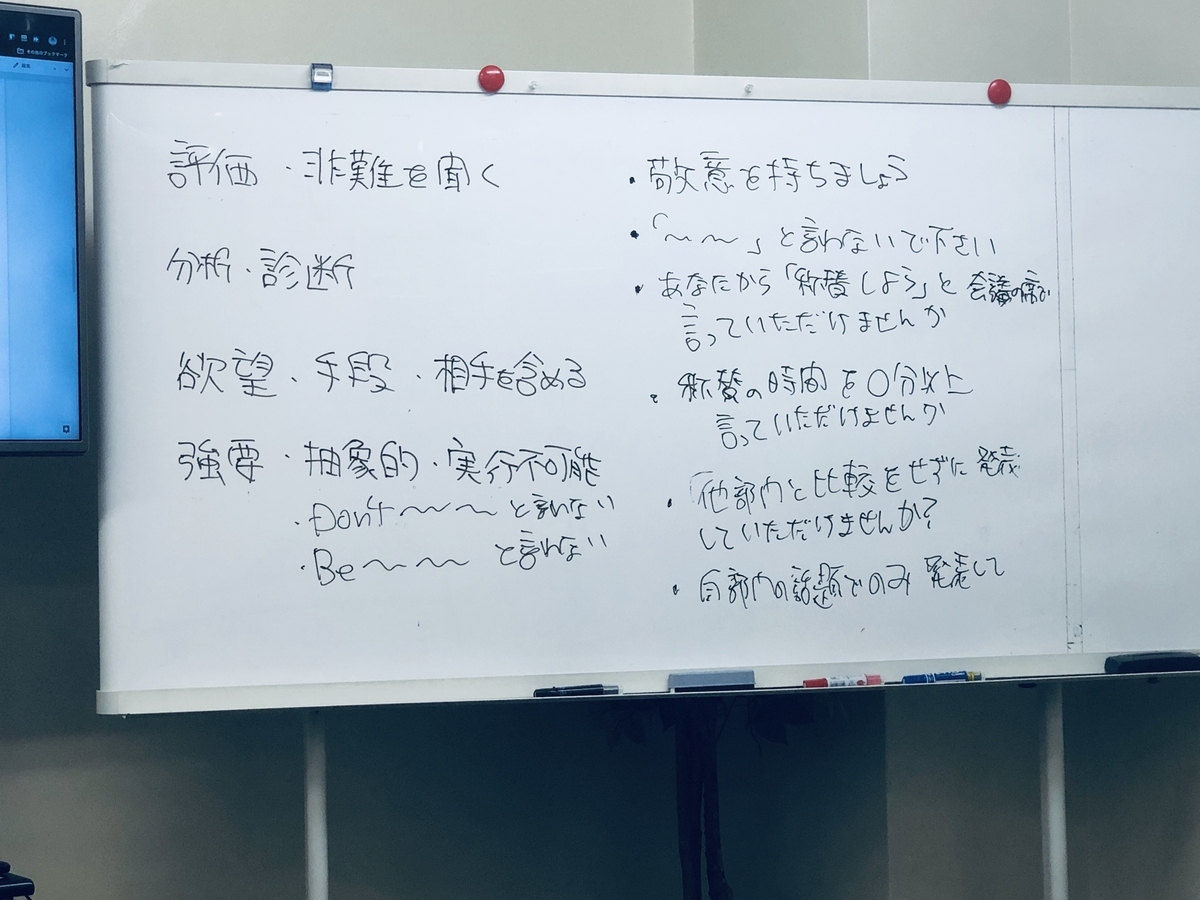 その他のブックマーク
編集
評価・非難を聞く
分析・診断
欲望・手段・相手を含める
強要・抽象的・実行不可能
・Don't 〜〜 と言わない
・Be 〜〜 と言わない
・敬意を持ちましょう
・「〜〜」と言わないで下さい
・あなたから「称賛しよう」と会議の席で
言っていただけませんか
・称賛の時間を〇分以上
言っていただけませんか
・他部内と比較をせずに発表
していただけませんか?
・自部内の話題でのみ発表して